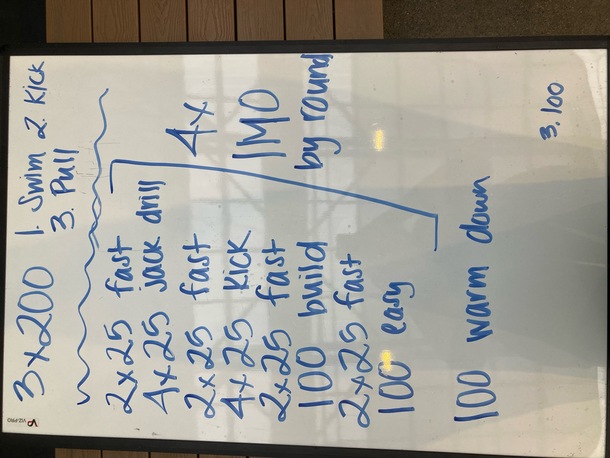 3x200 1. Swim 2. Kick
3. Pull
2x25 fast
4x25 jack drill
2x25 fast
4x25 kick
2x25 fast
100 build
2x25 fast
100 easy
4x
IMO
by round
100 warm down
3.100
VIZ-PRO